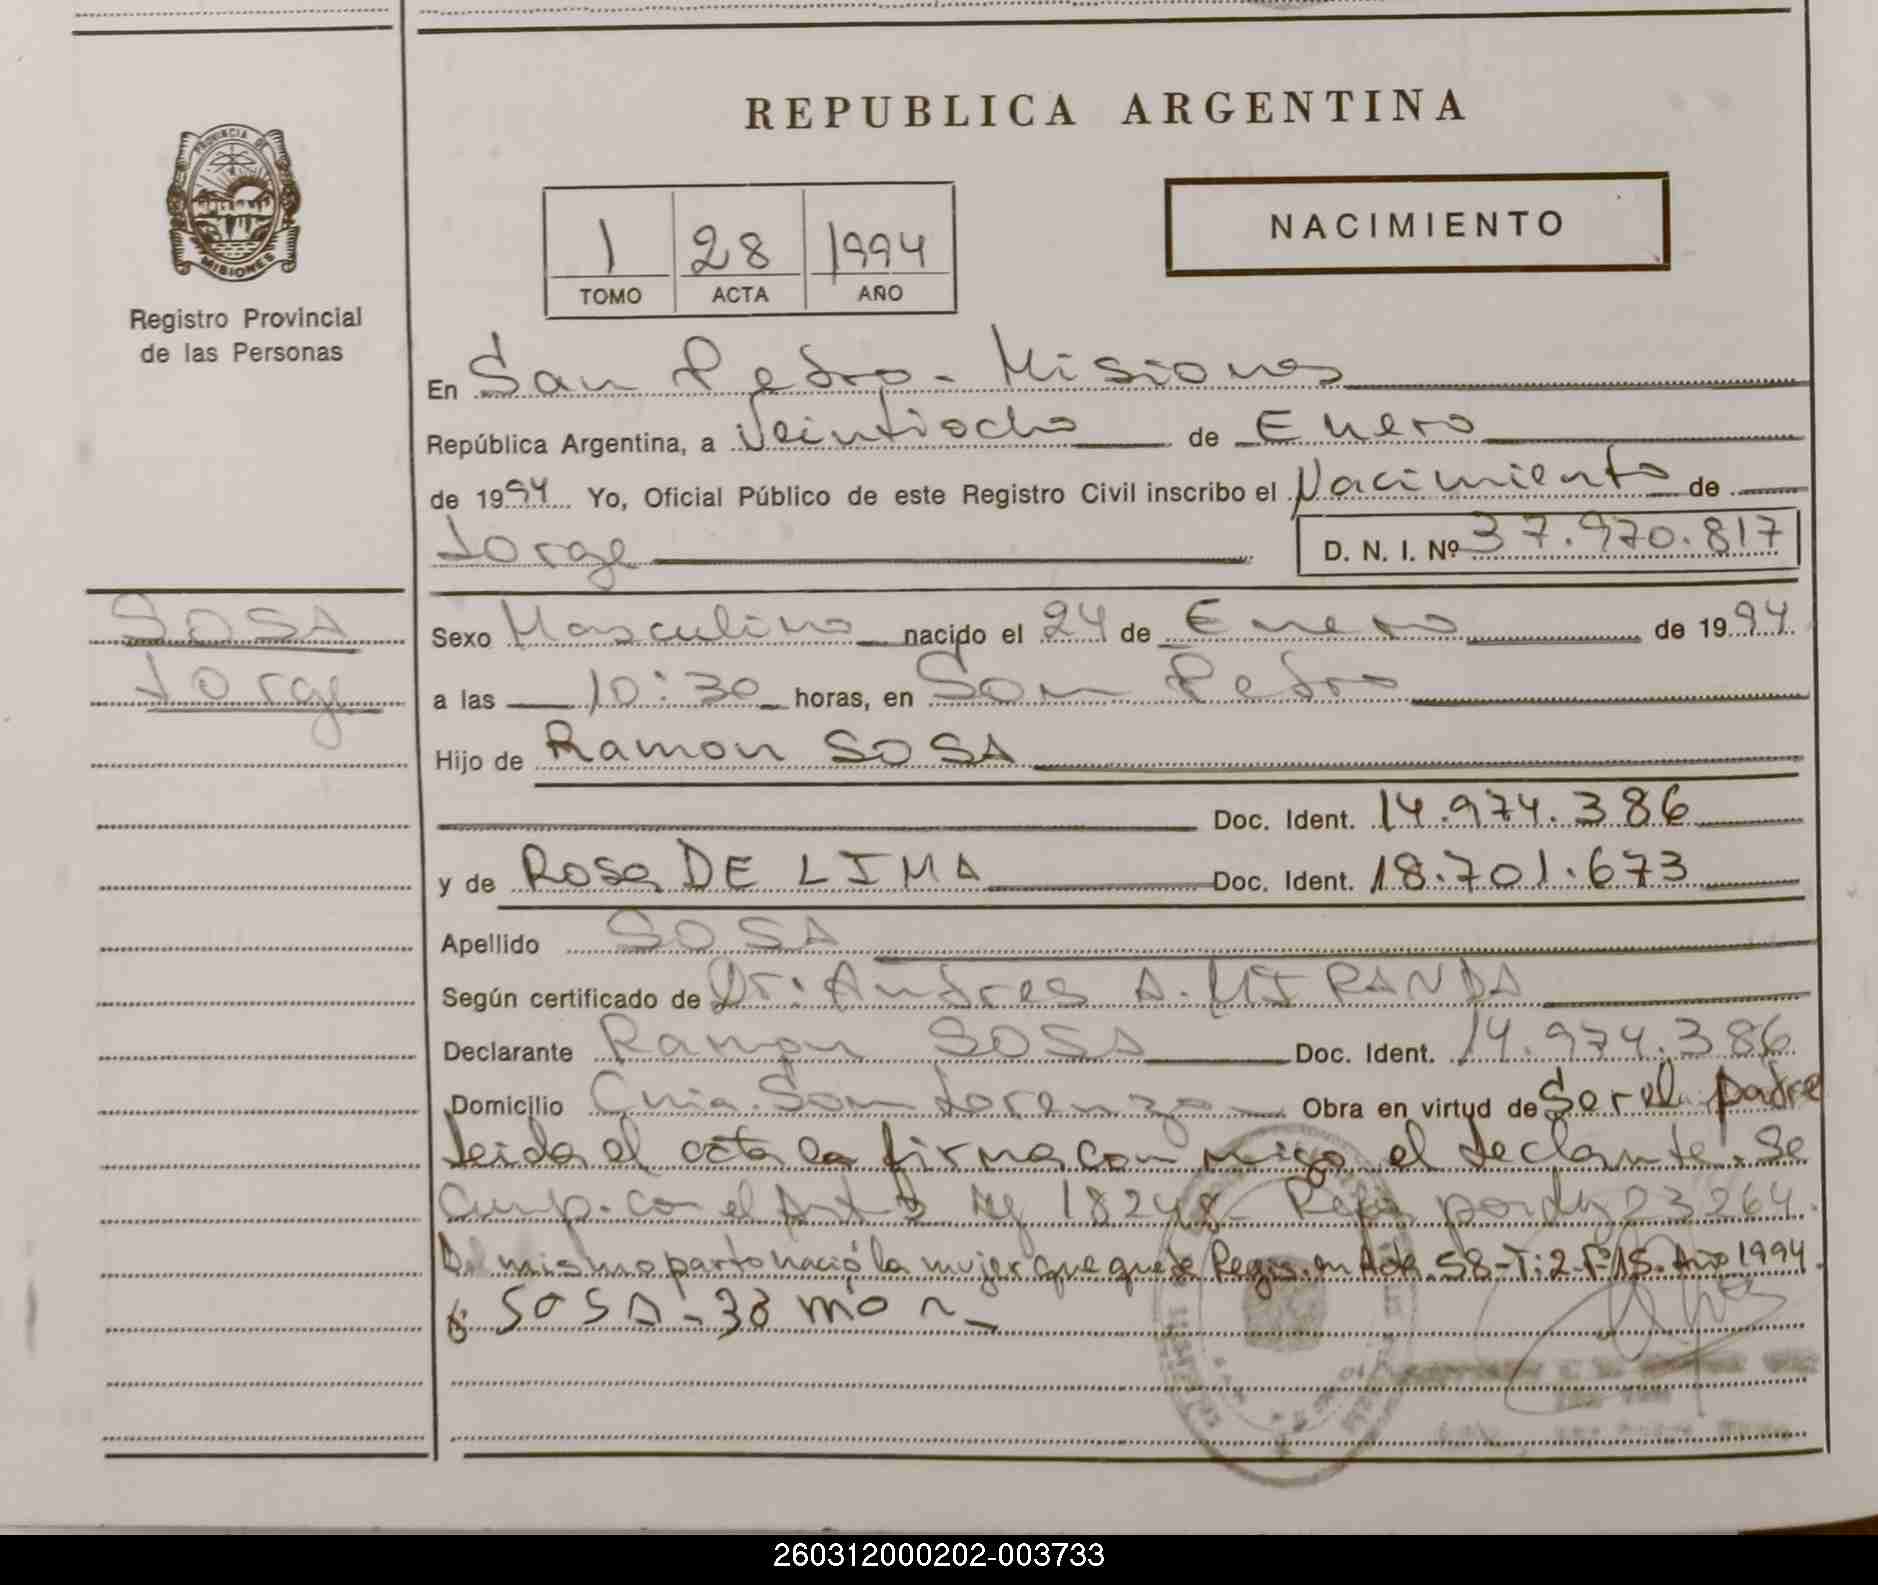 REPUBLICA ARGENTINA
PROVINCIA DE
MISIONES
Registro Provincial
de las Personas
1 28 1994
TOMO ACTA AÑO
NACIMIENTO
En San Pedro - Misiones
República Argentina, a Veintiocho de Enero
de 1994 Yo, Oficial Público de este Registro Civil inscribo el Nacimiento de
Jorge D. N. I. Nº 37.970.817
SOSA
Jorge
Sexo Masculino nacido el 24 de Enero de 1994
a las 10:30 horas, en San Pedro
Hijo de Ramon SOSA
Doc. Ident. 14.974.386
y de Rosa DE LIMA Doc. Ident. 18.701.673
Apellido SOSA
Según certificado de Dr. Andres A. MIRANDA
Declarante Ramon SOSA Doc. Ident. 14.974.386
Domicilio Cnia. San Lorenzo Obra en virtud de Ser el padre
Leida el acta la firma conmigo el declarante. Se
Cump. con el Art. Ley 18248 - por Ley 23264.
Del mismo parto nació la mujer que quede Regis. en Acta 58-T:2-Fº15-Año 1994
SOSA - Ramón
260312000202-003733